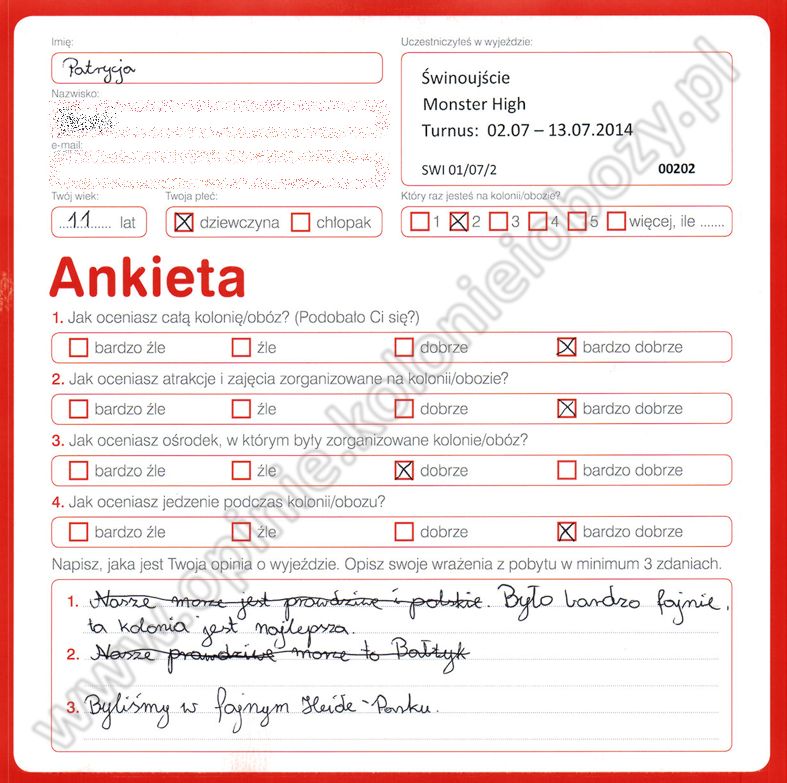 Imię:
Uczestniczyłeś w wyjeździe:
Patrycja
Świnoujście
Monster High
Turnus: 02.07 – 13.07.2014
SWI 01/07/2 00202
Nazwisko:
e-mail:
Twój wiek:
Twoja płeć:
Który raz jesteś na kolonii/obozie?
11 lat
dziewczyna chłopak
1 2 3 4 5 więcej, ile .......
Ankieta
1. Jak oceniasz całą kolonię/obóz? (Podobało Ci się?)
bardzo źle źle dobrze bardzo dobrze
2. Jak oceniasz atrakcje i zajęcia zorganizowane na kolonii/obozie?
bardzo źle źle dobrze bardzo dobrze
3. Jak oceniasz ośrodek, w którym były zorganizowane kolonie/obóz?
bardzo źle źle dobrze bardzo dobrze
4. Jak oceniasz jedzenie podczas kolonii/obozu?
bardzo źle źle dobrze bardzo dobrze
Napisz, jaka jest Twoja opinia o wyjeździe. Opisz swoje wrażenia z pobytu w minimum 3 zdaniach.
1. Nasze morze jest prawdziwe i polskie. Było bardzo fajnie,
ta kolonia jest najlepsza.
2. Nasze prawdziwe morze to Bałtyk
3. Byliśmy w fajnym Heide-Parku.
www.opinie.kolonieiobozy.pl